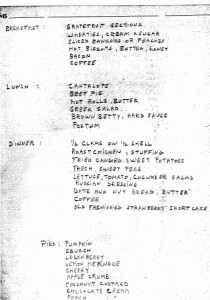 BREAKFAST : GRAPEFRUIT SECTIONS
WHEATIES, CREAM & SUGAR
SLICED BANANAS OR PEACHES
HOT BISCUITS, BUTTER, HONEY
BACON
COFFEE
LUNCH : CANTALOPE
BEEF PIE
HOT ROLLS, BUTTER
GREEK SALAD
BROWN BETTY, HARD SAUCE
POSTUM
DINNER : ½ CLAMS ON ½ SHELL
ROAST CHICKEN, STUFFING
FRIED CANDIED SWEET POTATOES
FRESH SWEET PEAS
LETTUCE, TOMATO, CUCUMBER SALAD
RUSSIAN DRESSING
DATE AND NUT BREAD, BUTTER
COFFEE
OLD FASHIONED STRAWBERRY SHORTCAKE
PIES : PUMPKIN
SQUASH
LOGANBERRY
LEMON MERINGUE
CHERRY
APPLE CRUMB
COCOANUT CUSTARD
CHOCOLATE CREAM
PEACH